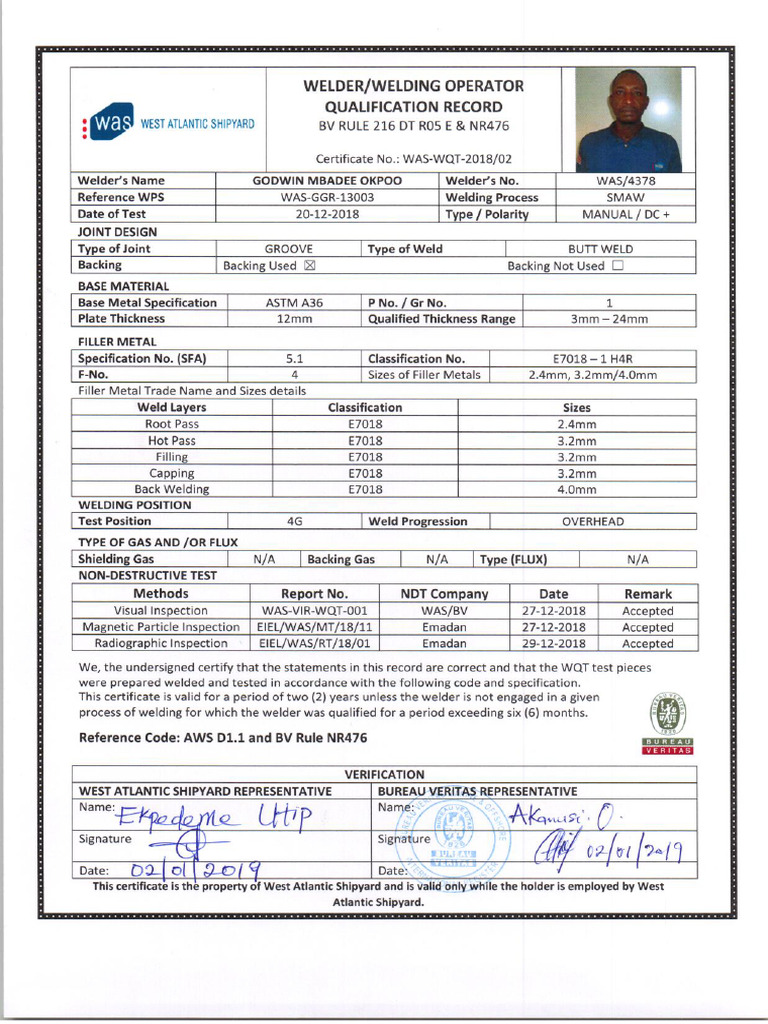 WELDER/WELDING OPERATOR
QUALIFICATION RECORD
BV RULE 216 DT R05 E & NR476
was WEST ATLANTIC SHIPYARD
Certificate No.: WAS-WQT-2018/02
Welder's Name GODWIN MBADEE OKPOO Welder's No. WAS/4378
Reference WPS WAS-GGR-13003 Welding Process SMAW
Date of Test 20-12-2018 Type / Polarity MANUAL / DC +
JOINT DESIGN
Type of Joint GROOVE Type of Weld BUTT WELD
Backing Backing Used ☒ Backing Not Used ☐
BASE MATERIAL
Base Metal Specification ASTM A36 P No. / Gr No. 1
Plate Thickness 12mm Qualified Thickness Range 3mm – 24mm
FILLER METAL
Specification No. (SFA) 5.1 Classification No. E7018 – 1 H4R
F-No. 4 Sizes of Filler Metals 2.4mm, 3.2mm/4.0mm
Filler Metal Trade Name and Sizes details
Weld Layers Classification Sizes
Root Pass E7018 2.4mm
Hot Pass E7018 3.2mm
Filling E7018 3.2mm
Capping E7018 3.2mm
Back Welding E7018 4.0mm
WELDING POSITION
Test Position 4G Weld Progression OVERHEAD
TYPE OF GAS AND /OR FLUX
Shielding Gas N/A Backing Gas N/A Type (FLUX) N/A
NON-DESTRUCTIVE TEST
Methods Report No. NDT Company Date Remark
Visual Inspection WAS-VIR-WQT-001 WAS/BV 27-12-2018 Accepted
Magnetic Particle Inspection EIEL/WAS/MT/18/11 Emadan 27-12-2018 Accepted
Radiographic Inspection EIEL/WAS/RT/18/01 Emadan 29-12-2018 Accepted
We, the undersigned certify that the statements in this record are correct and that the WQT test pieces
were prepared welded and tested in accordance with the following code and specification.
This certificate is valid for a period of two (2) years unless the welder is not engaged in a given
process of welding for which the welder was qualified for a period exceeding six (6) months.
Reference Code: AWS D1.1 and BV Rule NR476
BUREAU
VERITAS
VERIFICATION
WEST ATLANTIC SHIPYARD REPRESENTATIVE BUREAU VERITAS REPRESENTATIVE
Name: Ekpedeme Name: Akanusi O.
Signature Signature
Date: 02/01/2019 Date: 02/01/2019
This certificate is the property of West Atlantic Shipyard and is valid only while the holder is employed by West
Atlantic Shipyard.